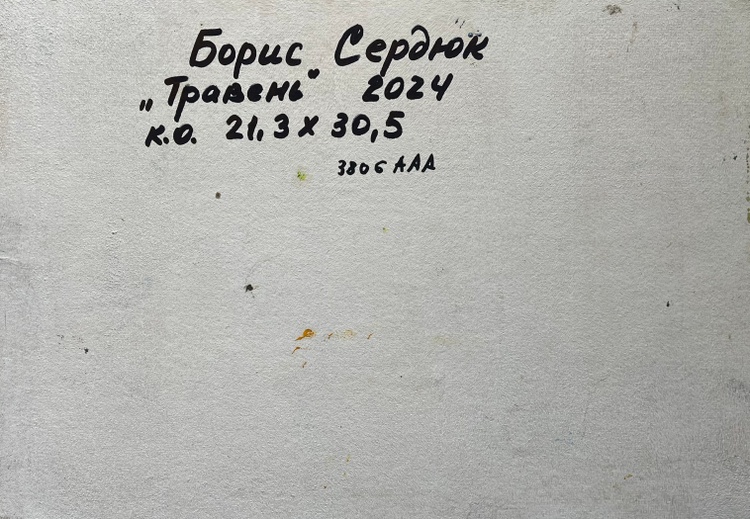 Борис Сердюк
„Травень" 2024
к.о. 21,3 х 30,5
3806 ААА